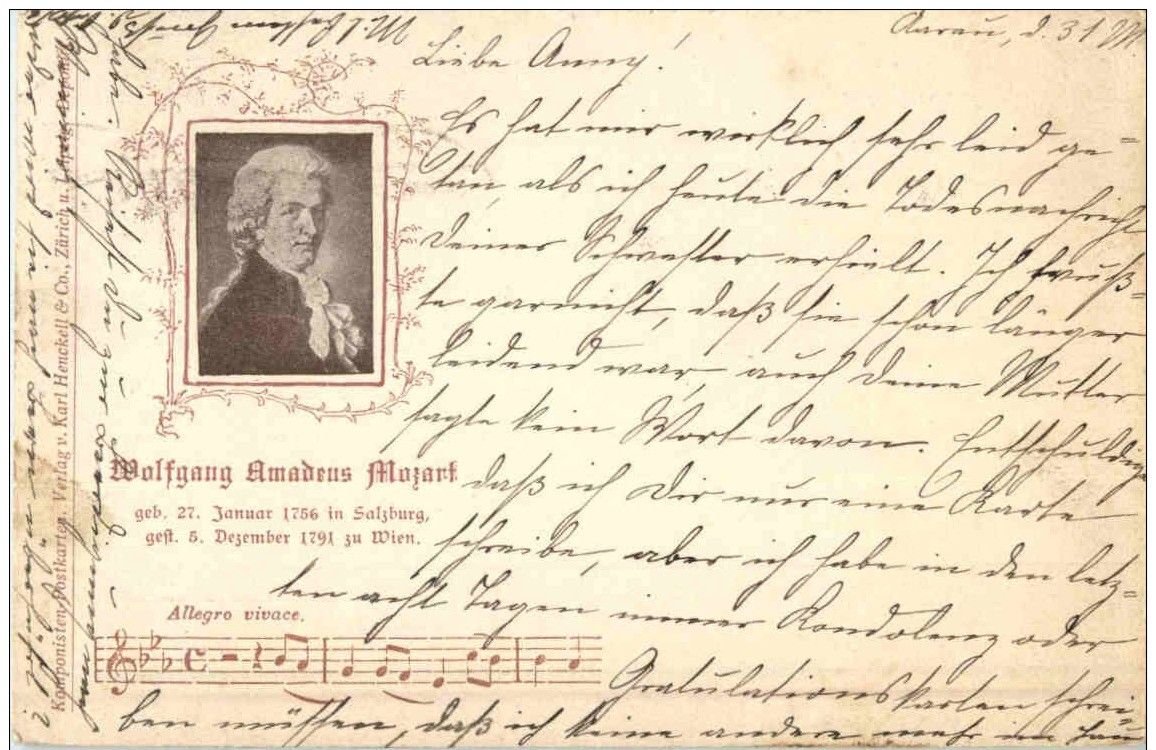 Aarau, d. 31
Liebe Anny!
Es hat mir wirklich sehr leid ge-
tan, als ich heute die Todesnachricht
deiner Schwester erhielt. Ich wuß-
te garnicht, daß sie schon länger
leidend war, auch deine Mutter
sagte kein Wort davon. Entschuldige
daß ich Dir nur eine Karte
schreibe, aber ich habe in den letz-
ten acht Tagen immer Kondolenz oder
Gratulationskarten schrei-
ben müssen, daß ich keine andere mehr im Hau
Wolfgang Amadeus Mozart
geb. 27. Januar 1756 in Salzburg,
gest. 5. Dezember 1791 zu Wien.
Allegro vivace.
Komponisten-Postkarten. Verlag v. Karl Henckell & Co., Zürich u.